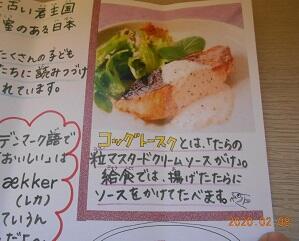 古い君主国
室のある日本
たくさんの子ども
たちに読みつづけ
れています。
デンマーク語で
"おいしい"は
ækker
(レカ)
ていうん
だって!
コッグトースクとは、「たらの
粒マスタードクリームソースがけ」。
給食では、揚げたたらに
ソースをかけてたべます。
2020.02.08